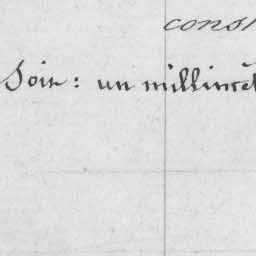 const
Soit : un millimèt